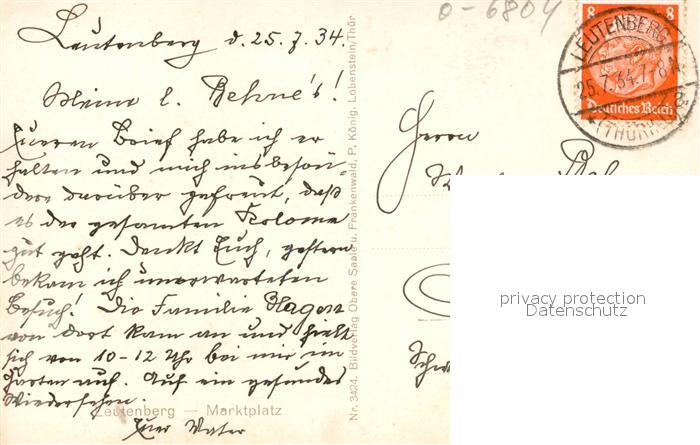 o-6804
Leutenberg d. 25.7.34.
Meine l. Behne's!
Eueren Brief habe ich er
halten und mich insbeson-
dere darüber gefreut, daß
es der gesamten Kolonne
gut geht. Denkt Euch, gestern
bekam ich unerwarteten
Besuch! Die Familie Hagen
von dort kam an und hielt
sich von 10-12 Uhr bei mir im
Garten auf. Auf ein gesundes
Wiedersehen.
Euer Vater
Leutenberg — Marktplatz
Nr. 3424. Bildverlag Obere Saale u. Frankenwald, P. König, Lobenstein/Thür
8 8
Deutsches Reich
LEUTENBERG
25.7.34.7-8
(THÜR)
Herrn
privacy protection
Datenschutz